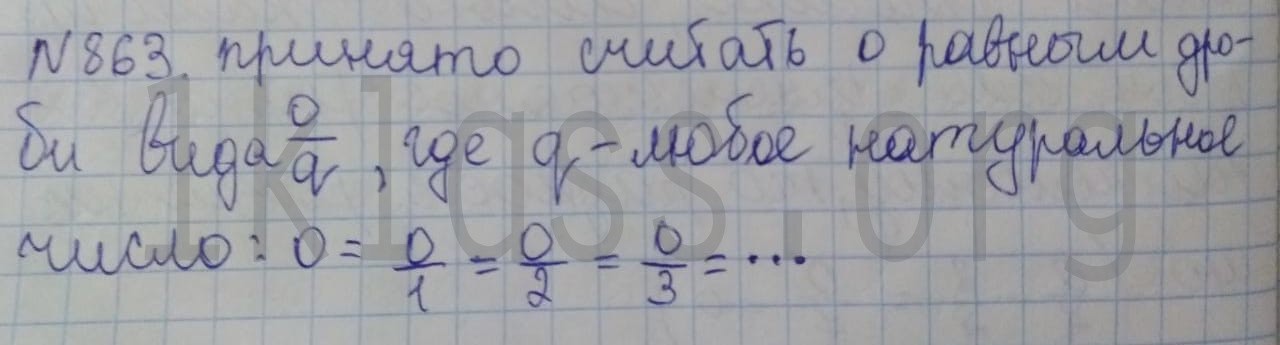 N 863. принято считать 0 равным дро-
би вида 0/q, где q - любое натуральное
число: 0 = 0/1 = 0/2 = 0/3 = ...
1klass.org